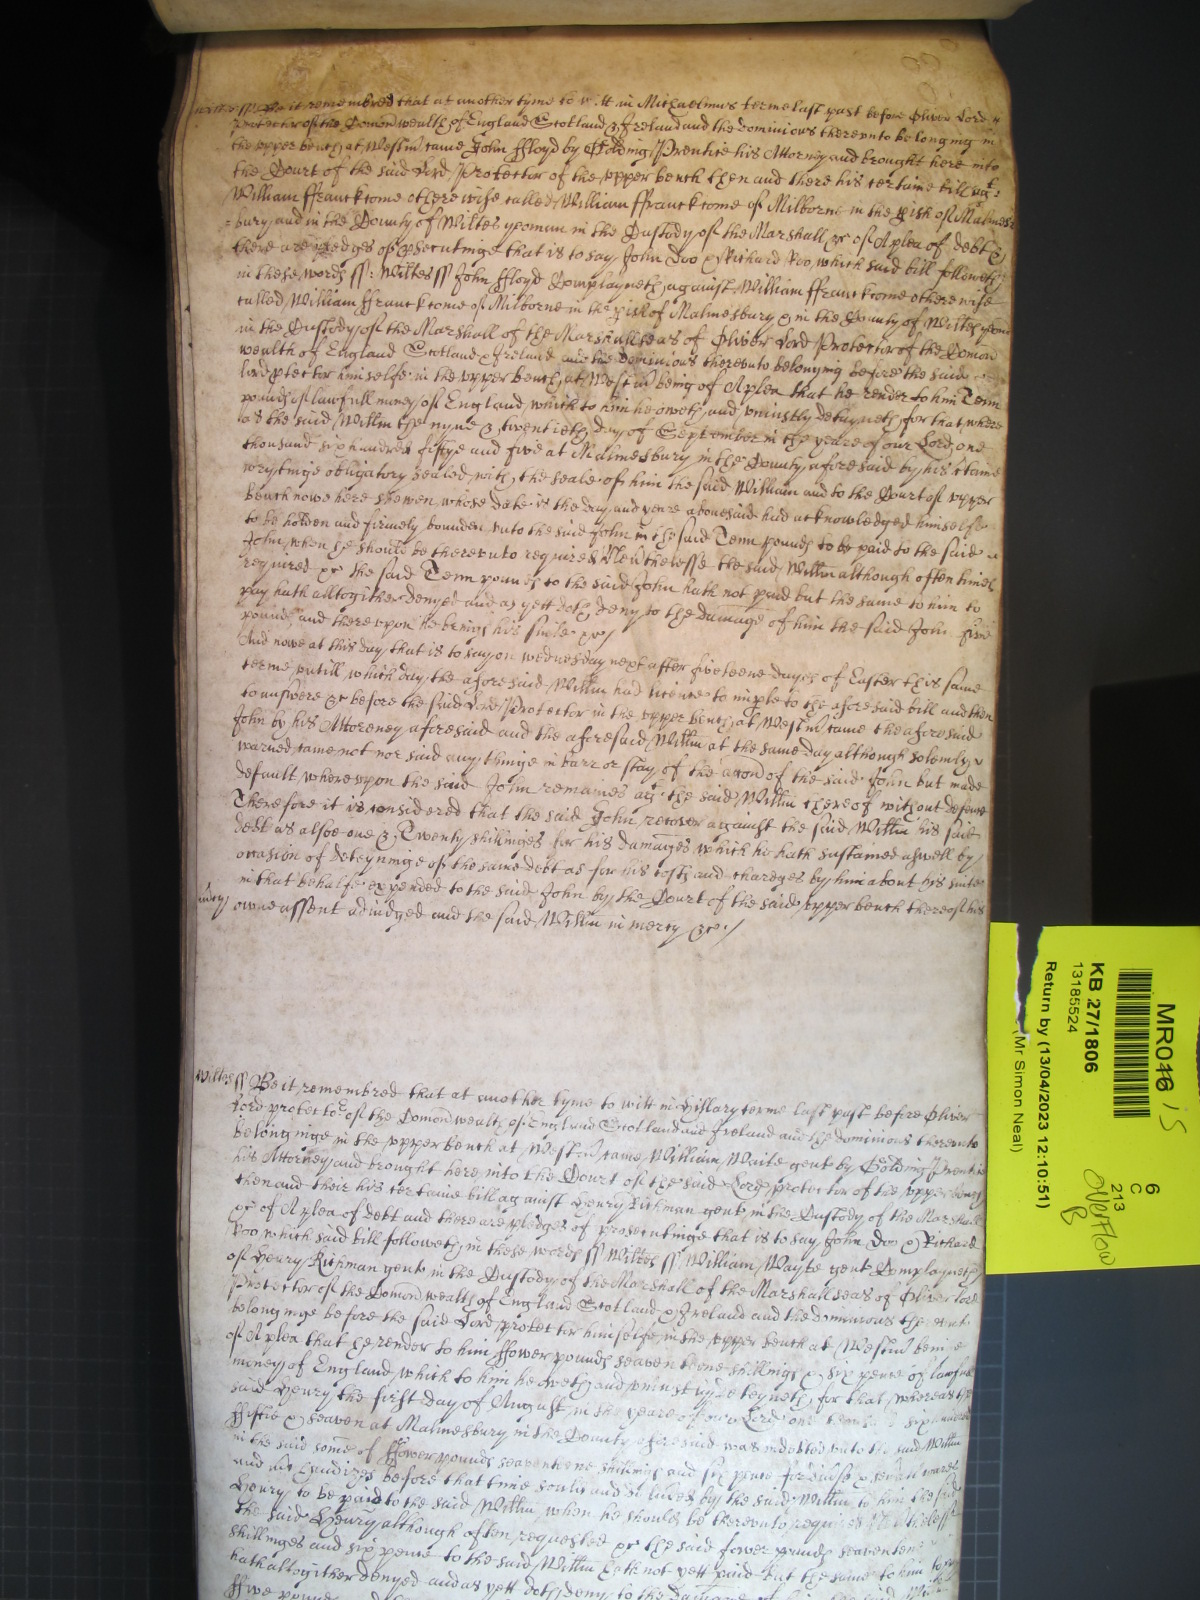 Wiltes ss Be it remembred that at another tyme to witt in Michaelmas terme last past before Oliver Lord
Protector of the Comon wealth of England Scotland & Ireland and the dominions thereunto belonging in
the upper bench at Westm came John ffloyd by Golding Prentice his Attorney and brought here into
the Court of the said Lord Protector of the upper bench then and there his certaine bill agt
William ffranckcome otherwise called William ffranckcome of Milborne in the pish of Malmes
bury and in the County of Wiltes yeoman in the Custody of the Marshall &c of A plea of debt &
there are pledges of psecutinge that is to say John Doo & Richard Roo, which said bill followeth
in these words ss: Wiltes ss John ffloyd Complayneth against William ffranckcome otherwise
called William ffranckcome of Milborne in the pish of Malmesbury & in the County of Wiltes yeom
in the Custody of the Marshall of the Marshallseas of Oliver Lord Protector of the Comon
wealth of England Scotland & Ireland and the Dominions thereunto belonging before the said
lord ptector himselfe in the upper bench at Westm being of A plea that he render to him Tenn
pounds of lawfull money of England, which to him he oweth and uniustly detayneth, for that, where
as the said Willm the nyne & twentieth day of September in the yeare of our Lord one
thousand six hundred fiftye and five at Malmesbury in the County aforesaid by his ctaine
wrytinge obligatory sealed with the seale of him the said William and to the Court of upper
bench nowe here shewen, whose date is the day and yeare abovesaid had acknowledged himselfe
to be holden and firmely bounden unto the said John in the said Tenn pounds to be paid to the said
John, when he should be thereunto required Nevthelesse the said Willm although often times
required &c the said Tenn pounds to the said John hath not paid but the same to him to
pay hath alltogither denyed and as yett doth deny to the damage of him the said John five
pounds and thereupon he brings his suite &c
And nowe at this day, that is to say on wednesday next after fiveteene dayes of Easter this same
terme untill which day the aforesaid Willm had licence to imple to the aforesaid bill and then
to answere &c before the said Lord Protector in the upper bench at Westm came the aforesaid
John by his Attorney aforesaid and the aforesaid Willm at the same day although solemly
warned came not nor said any thinge in barr or stay of the accon of the said John but made
default whereupon the said John remaines agt the said Willm thereof without defence
Therefore it is considered that the said John recover against the said Willm his said
debt as alsoe one & Twenty shillinges for his damages which he hath sustained aswell by
occasion of deteyninge of the same debt as for his costs and chardges by him about his suite
in that behalfe expended to the said John by the Court of the said upper bench thereof his
owne assent adiudged and the said Willm in mercy &c
Wiltes ss Be it remembred that at another tyme to witt in Hillary terme last past before Oliver
Lord protector of the Comon wealth of England Scotland and Ireland and the dominions thereunto
belonginge in the upper bench at Westm came William Waite gent by Golding Prentice
his Attorney and brought here into the Court of the said Lord protector of the upper bench
then and their his certaine bill against Henry Richman gent in the Custody of the Marshall
&c of A plea of debt and there are pledges of prosecutinge that is to say John Doo & Richard
Roo which said bill followeth in these words ss Wiltes ss William Wayte gent Complayneth
of Henry Richman gent in the Custody of the Marshall of the Marshallseas of Oliver lord
Protector of the Comon wealth of England Scotland & Ireland and the dominions thereunto
belonginge before the said Lord protector himselfe in the upper bench at Westm beinge
of A plea that he render to him ffower pounds seaventeene shillings & six pence of lawfull
money of England, which to him he oweth and uniustly deteyneth, for that, whereas the
said Henry the first day of August in the yeare of our Lord one thousand six hundred
ffiftie & seaven at Malmesbury in the County aforesaid was indebted unto the said Willm
in the said some of ffower pounds seaventeene shillings and six pence for divse & sevall wares
and before that time sould and delivered by the said Willm to him the said
Henry to be paid to the said Willm when he should be thereunto required Nevthelesse
the said Henry although often requested &c the said fower pounds seaventene
shillinges and six pence to the said Willm hath not yett paid but the same to him to pay
hath altogither denyed and as yett doth deny to the damage of him the said Willm
ffive pounds
MR046 15
KB 27/1806
13185524
Return by (13/04/2023 12:10:51)
(Mr Simon Neal)
6
C
213
Overflow
B